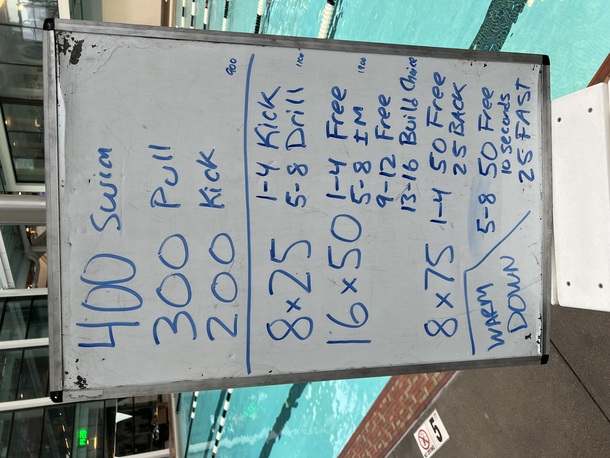 400 Swim
300 Pull
200 Kick
900
8x25 1-4 Kick
5-8 Drill
1100
16x50 1-4 Free
5-8 IM
1900
9-12 Free
13-16 Build Choice
8x75 1-4 50 Free
25 BACK
5-8 50 Free
10 seconds
25 FAST
WARM
DOWN
5